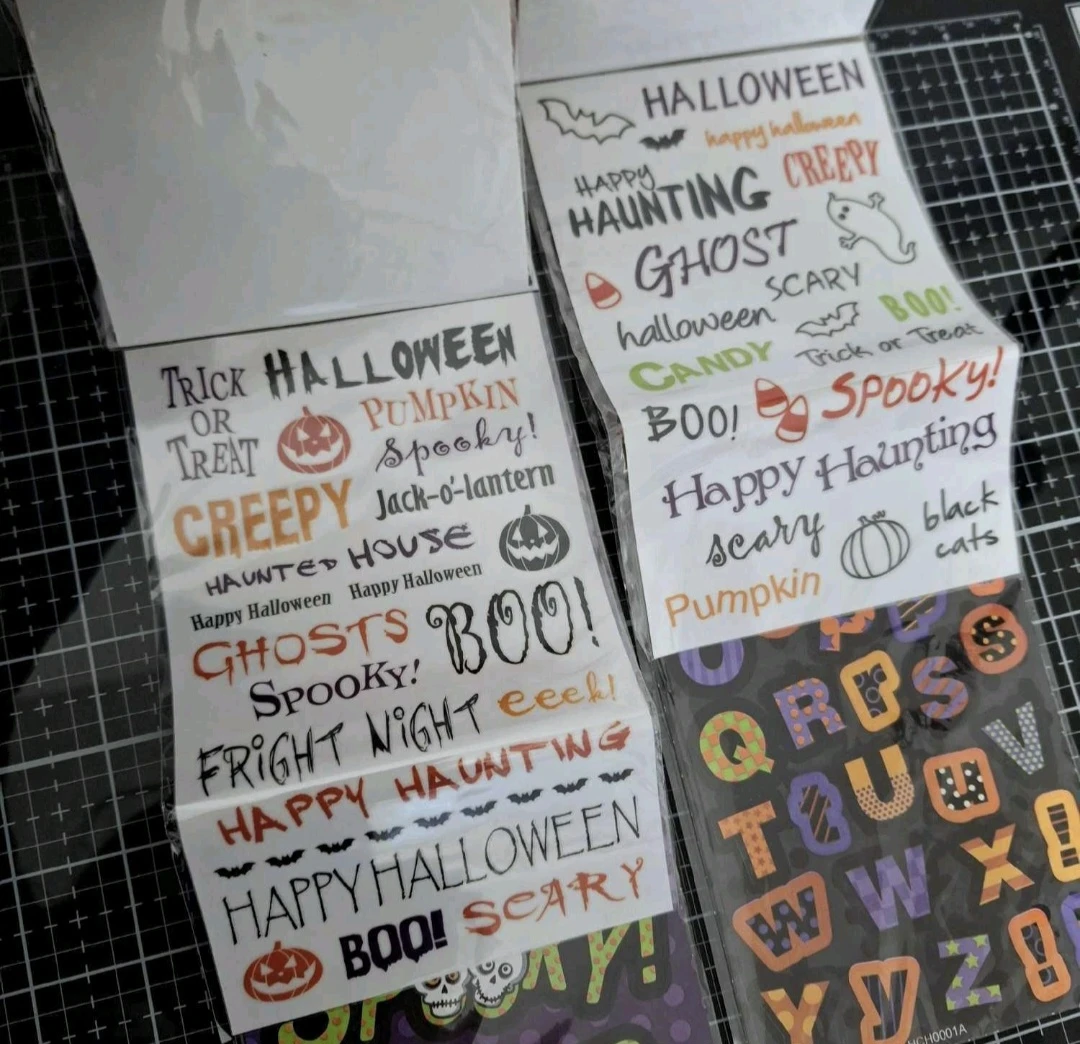 TRICK
OR
TREAT
HALLOWEEN
PUMPKIN
Spooky!
CREEPY
Jack-o'-lantern
HAUNTED HOUSE
Happy Halloween
Happy Halloween
GHOSTS
BOO!
SPOOKY!
FRIGHT NIGHT
eeek!
HAPPY HAUNTING
HAPPY HALLOWEEN
BOO!
SCARY
HALLOWEEN
happy halloween
HAPPY
HAUNTING
CREEPY
GHOST
SCARY
halloween
BOO!
CANDY
Trick or Treat
BOO!
SPOOKY!
Happy Haunting
scary
black
cats
Pumpkin
S
Q R P S
T U U V
W W X !
Y Y Z !